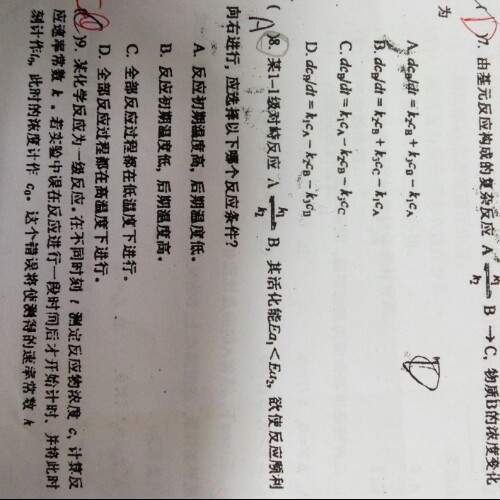 (D)7. 由基元反应构成的复杂反应 A ⇌ B → C, 物质B的浓度变化
k₁
k₂
为
A. dcB/dt = k₂cB + k₃cB − k₁cA
B. dcB/dt = k₂cB + k₃cC − k₁cA
C. dcB/dt = k₁cA − k₂cB − k₃cC
D. dcB/dt = k₁cA − k₂cB − k₃cB
D
(A)8. 某1-1级对峙反应 A ⇌ B, 其活化能Ea₁ < Ea₂, 欲使反应顺利
k₁
k₂
向右进行, 应选择以下哪个反应条件?
A. 反应初期温度高, 后期温度低。
B. 反应初期温度低, 后期温度高。
C. 全部反应过程都在低温度下进行。
D. 全部反应过程都在高温度下进行。
)9. 某化学反应为一级反应。在不同时刻 t 测定反应物浓度 c, 计算反
应速率常数 k 。若实验中误在反应进行一段时间后才开始计时、并将此时
刻计作t₀, 此时的浓度计作 c₀。这个错误将使测得的速率常数 k